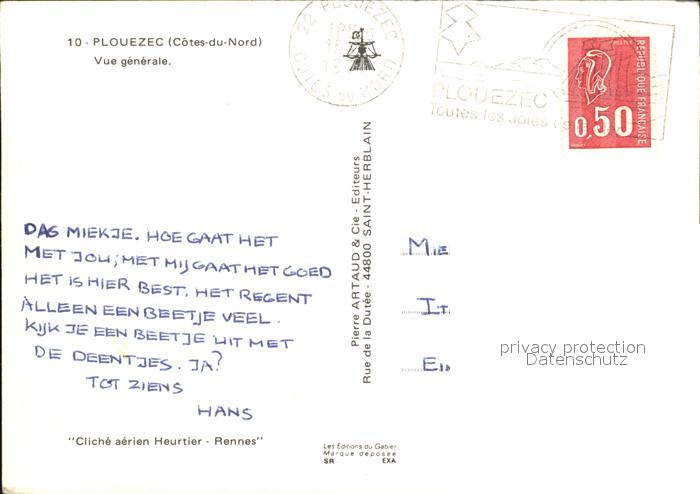 10 - PLOUEZEC (Côtes-du-Nord)
Vue générale.
22 PLOUEZEC
CÔTES-DU-NORD
PLOUEZEC
Toutes les Joies de
POSTES
RÉPUBLIQUE FRANÇAISE
0,50
DAG MIEKJE. HOE GAAT HET
MET JOU, MET MIJ GAAT HET GOED
HET IS HIER BEST. HET REGENT
ALLEEN EEN BEETJE VEEL.
KIJK JE EEN BEETJE UIT MET
DE DEENTJES. JA?
TOT ZIENS
HANS
Pierre ARTAUD & Cie - Editeurs
Rue de la Dutée - 44800 SAINT-HERBLAIN
MIE
IT
privacy protection
Datenschutz
"Cliché aérien Heurtier - Rennes"
Les Editions du Gabier
Marque déposée
SR EXA